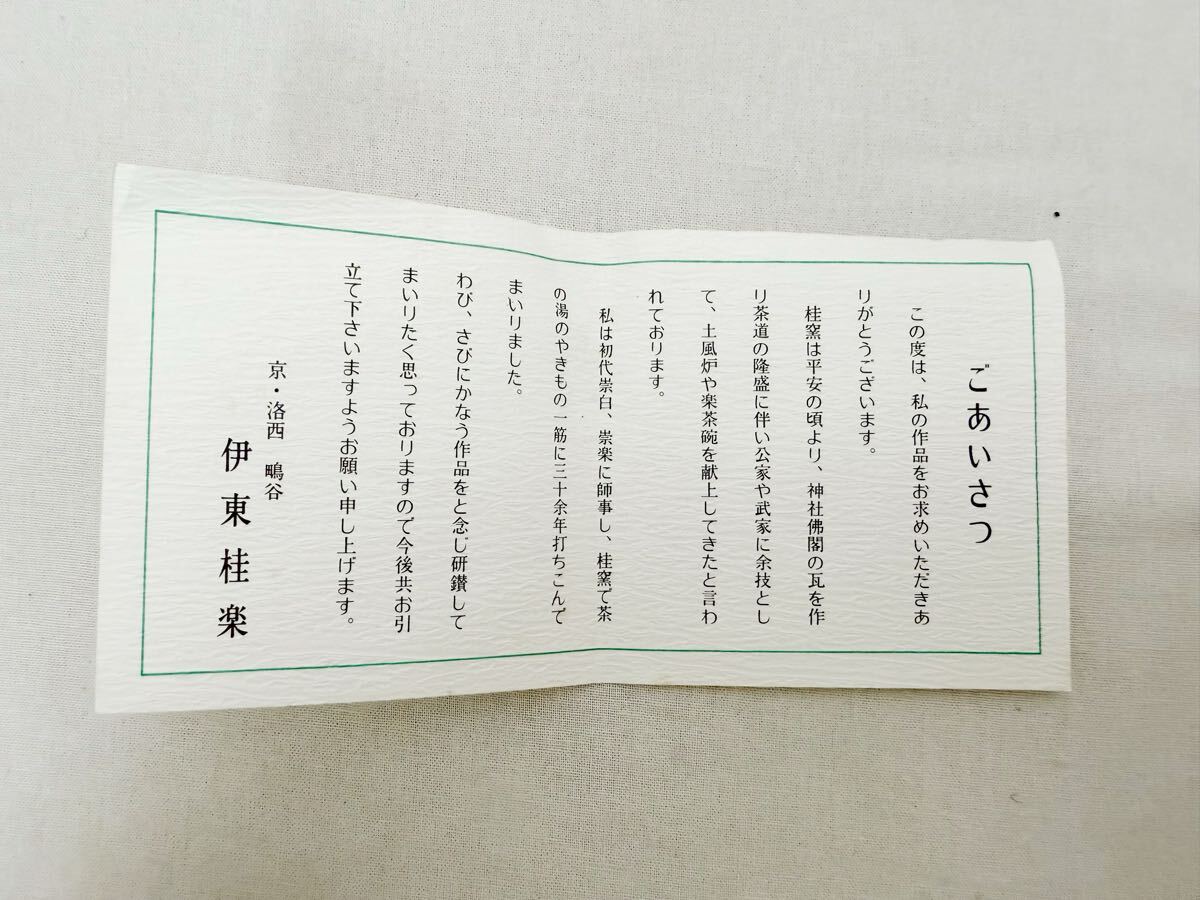 ごあいさつ
この度は、私の作品をお求めいただきあ
りがとうございます。
桂窯は平安の頃より、神社佛閣の瓦を作
り茶道の隆盛に伴い公家や武家に余技とし
て、土風炉や楽茶碗を献上してきたと言わ
れております。
私は初代崇白、崇楽に師事し、桂窯で茶
の湯のやきもの一筋に三十余年打ちこんで
まいりました。
わび、さびにかなう作品をと念じ研鑚して
まいりたく思っておりますので今後共お引
立て下さいますようお願い申し上げます。
京・洛西　鴫谷
伊東桂楽